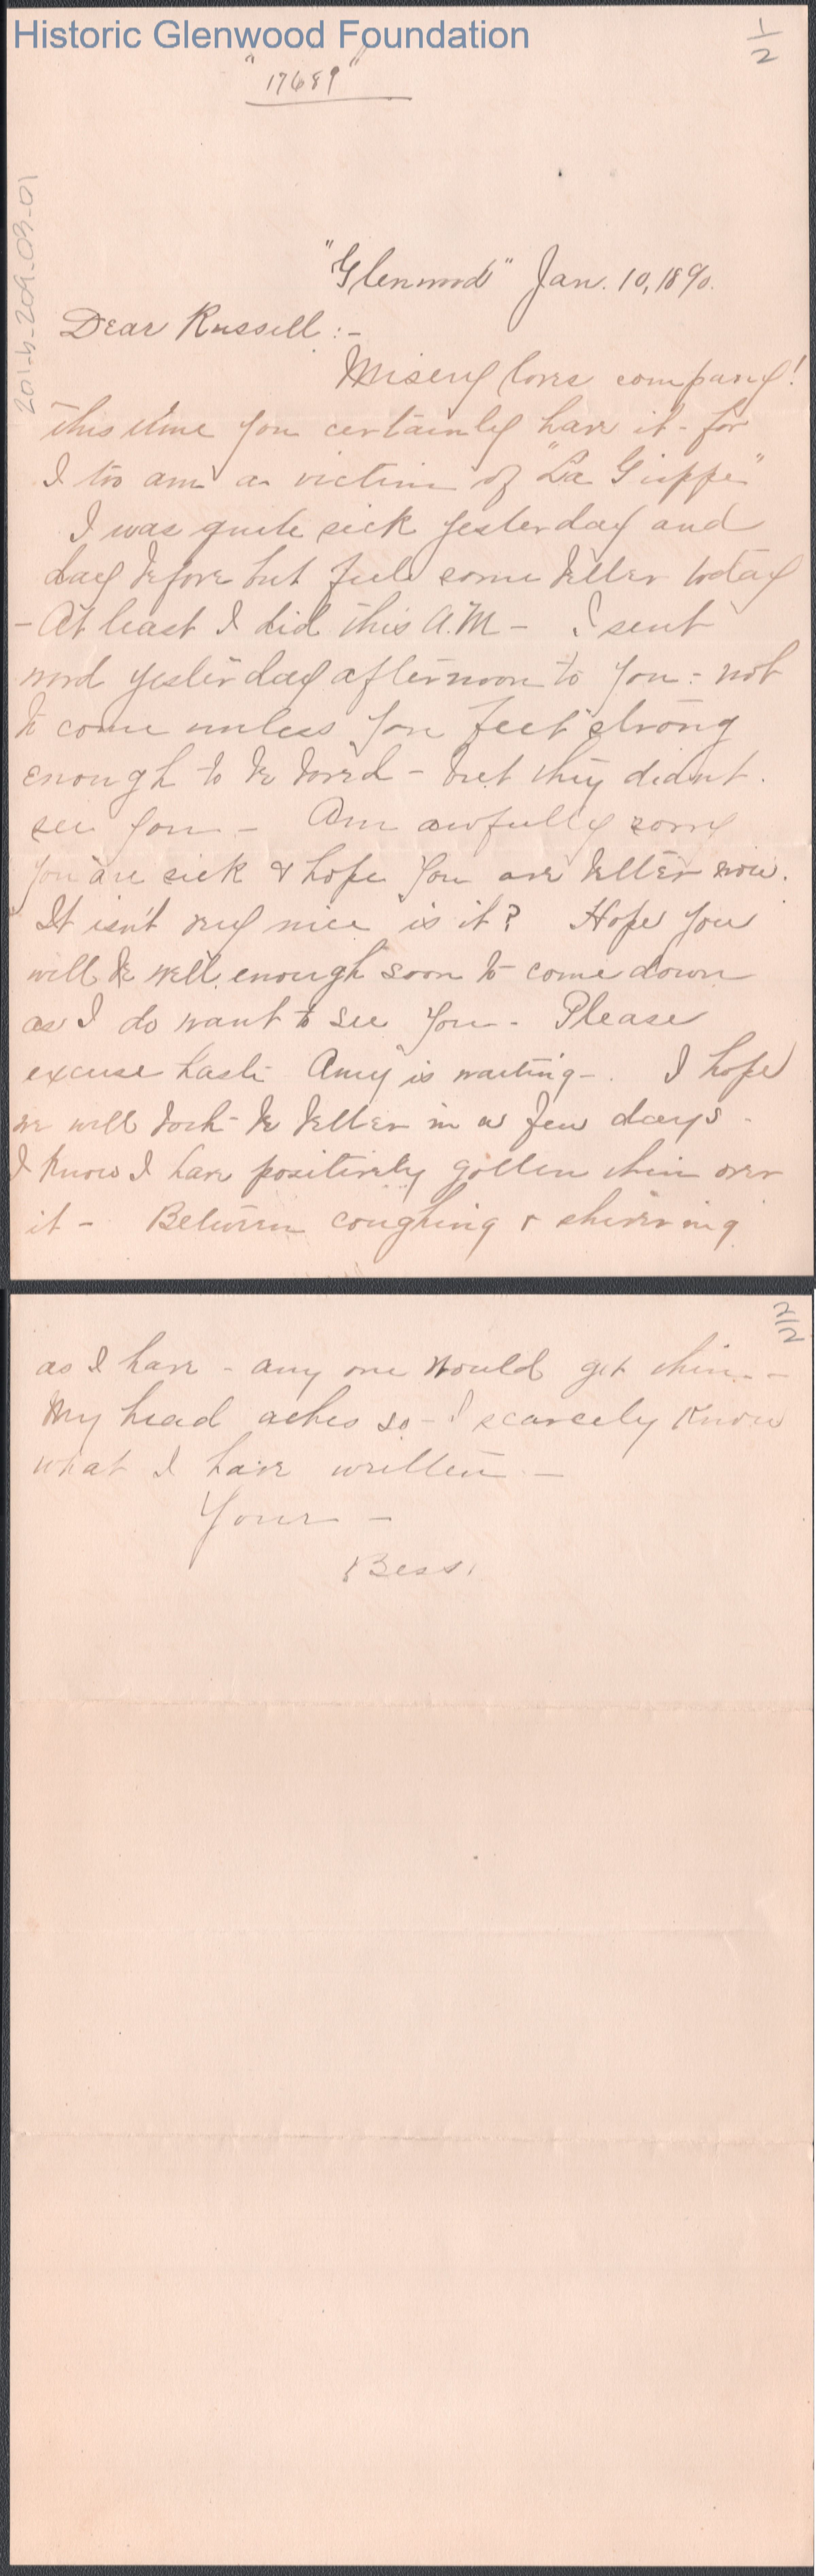 Historic Glenwood Foundation
1/2
"17689"
201-h-209-03-01
"Glenwood" Jan. 10, 1890.
Dear Russell :-
Misery loves company!
This time you certainly have it - for
I too am a victim of "La Grippe"
I was quite sick yesterday and
day before but feel some better today
- At least I did this A.M - I sent
word yesterday afternoon to you - not
to come unless you feel strong
enough to be bored - but they didn't
see you - Am awfully sorry
you are sick & hope you are better now.
It isn't very nice is it? Hope you
will be well enough soon to come down
as I do want to see you - Please
excuse haste Amy is waiting - . I hope
we will both be better in a few days -
I know I have positively gotten thin over
it - Between coughing & shivering
2/2
as I have - any one would get thin. -
My head aches so - I scarcely know
what I have written -
Yours -
Bess.